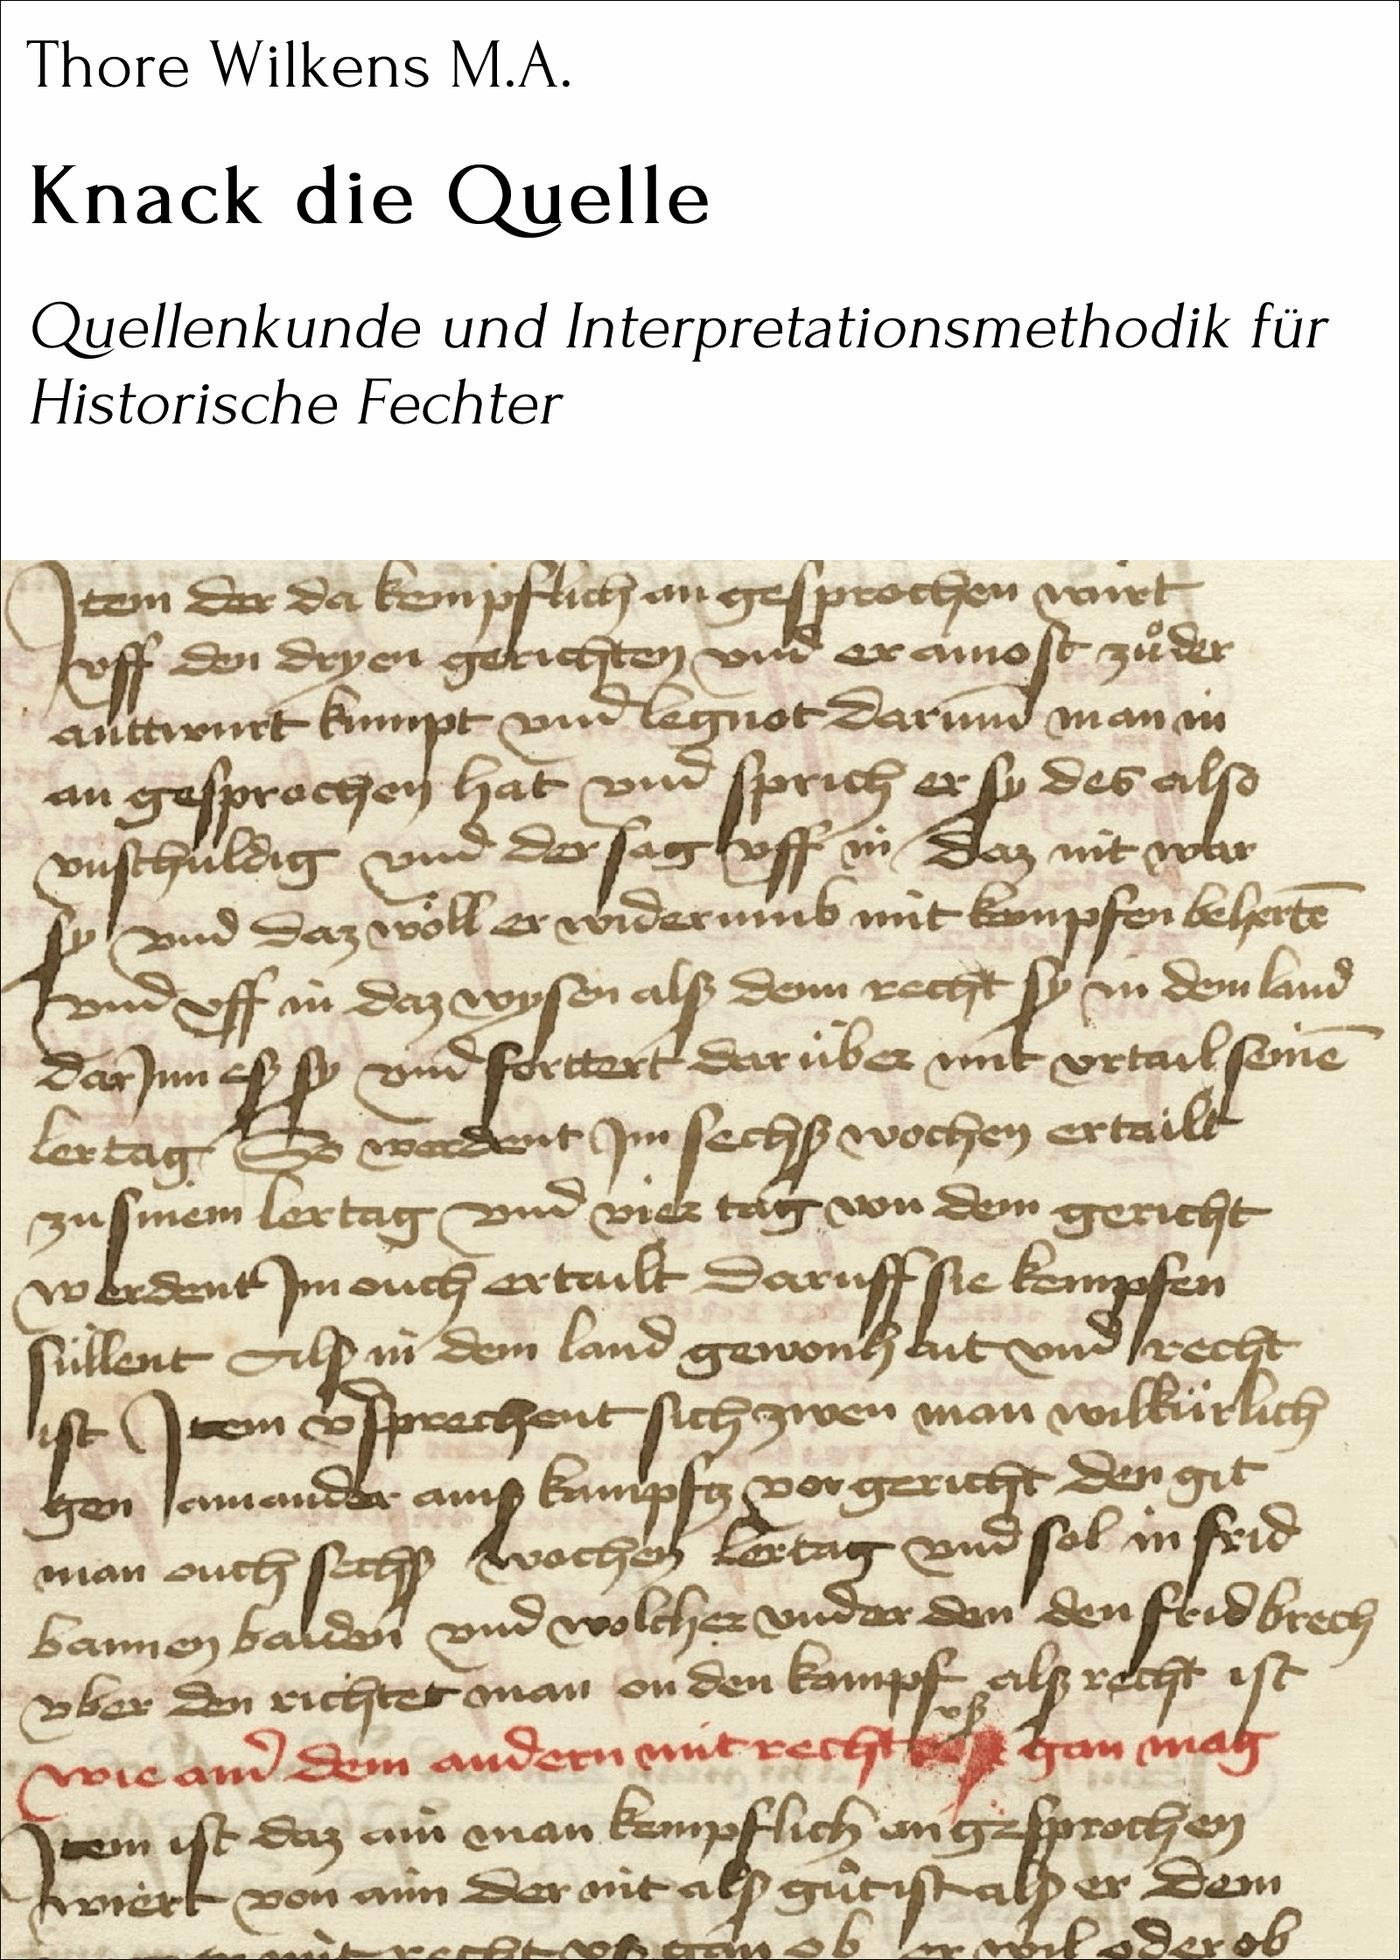 Thore Wilkens M.A.
Knack die Quelle
Quellenkunde und Interpretationsmethodik für
Historische Fechter
Item der da kempflich an gesprochen wirt
vff den dryen gerichten vnd er amost zůder
anttwurt kumpt vnd legnot darumb man in
an gesprochen hat vnd sprich er sy des also
vnschuldig vnd der sag vff in daz nit war
sy vnd daz wöll er widerumb mit kempfen behertē
vnd vff in daz wysen alß denn recht sy in dem land
darJnn eß sy vnd forttert darüber mit vrtail seinē
lertag So werdent Jm sechß wochen ertailt
zu sinem lertag vnd vier tag von dem gericht
werdent Jm ouch ertailt daruff sie kempfen
süllent Alß in dem land gewonhait vnd recht
ist Item vsprechent sich zwen man wilkürlich
gen ainander ainß kampfz vor gericht den git
man ouch sechß wochen lertag vnd sol in frid
bannen baiden vnd wolcher vnder den den frid brech
vber den richtet man on den kampf alß recht ist
wie ainer dem andern mit recht vß gan mag
Item ist daz ain man kempflich angesprochen
wiert von aim der nit alß gůt ist alß er dem
mit recht vß gan ob er wil oder ob